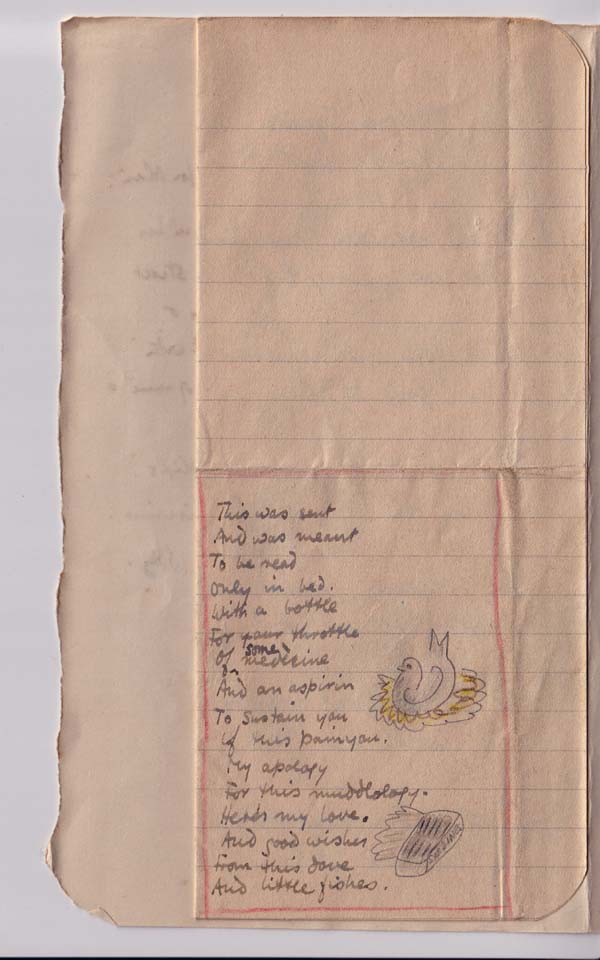 This was sent
And was meant
To be read
Only in bed.
With a bottle
For your throttle
Of some medicine
And an aspirin
To sustain you
If this pain you.
My apology
For this muddlology.
Here's my love.
And good wishes
From this dove
And little fishes.
SARDINES